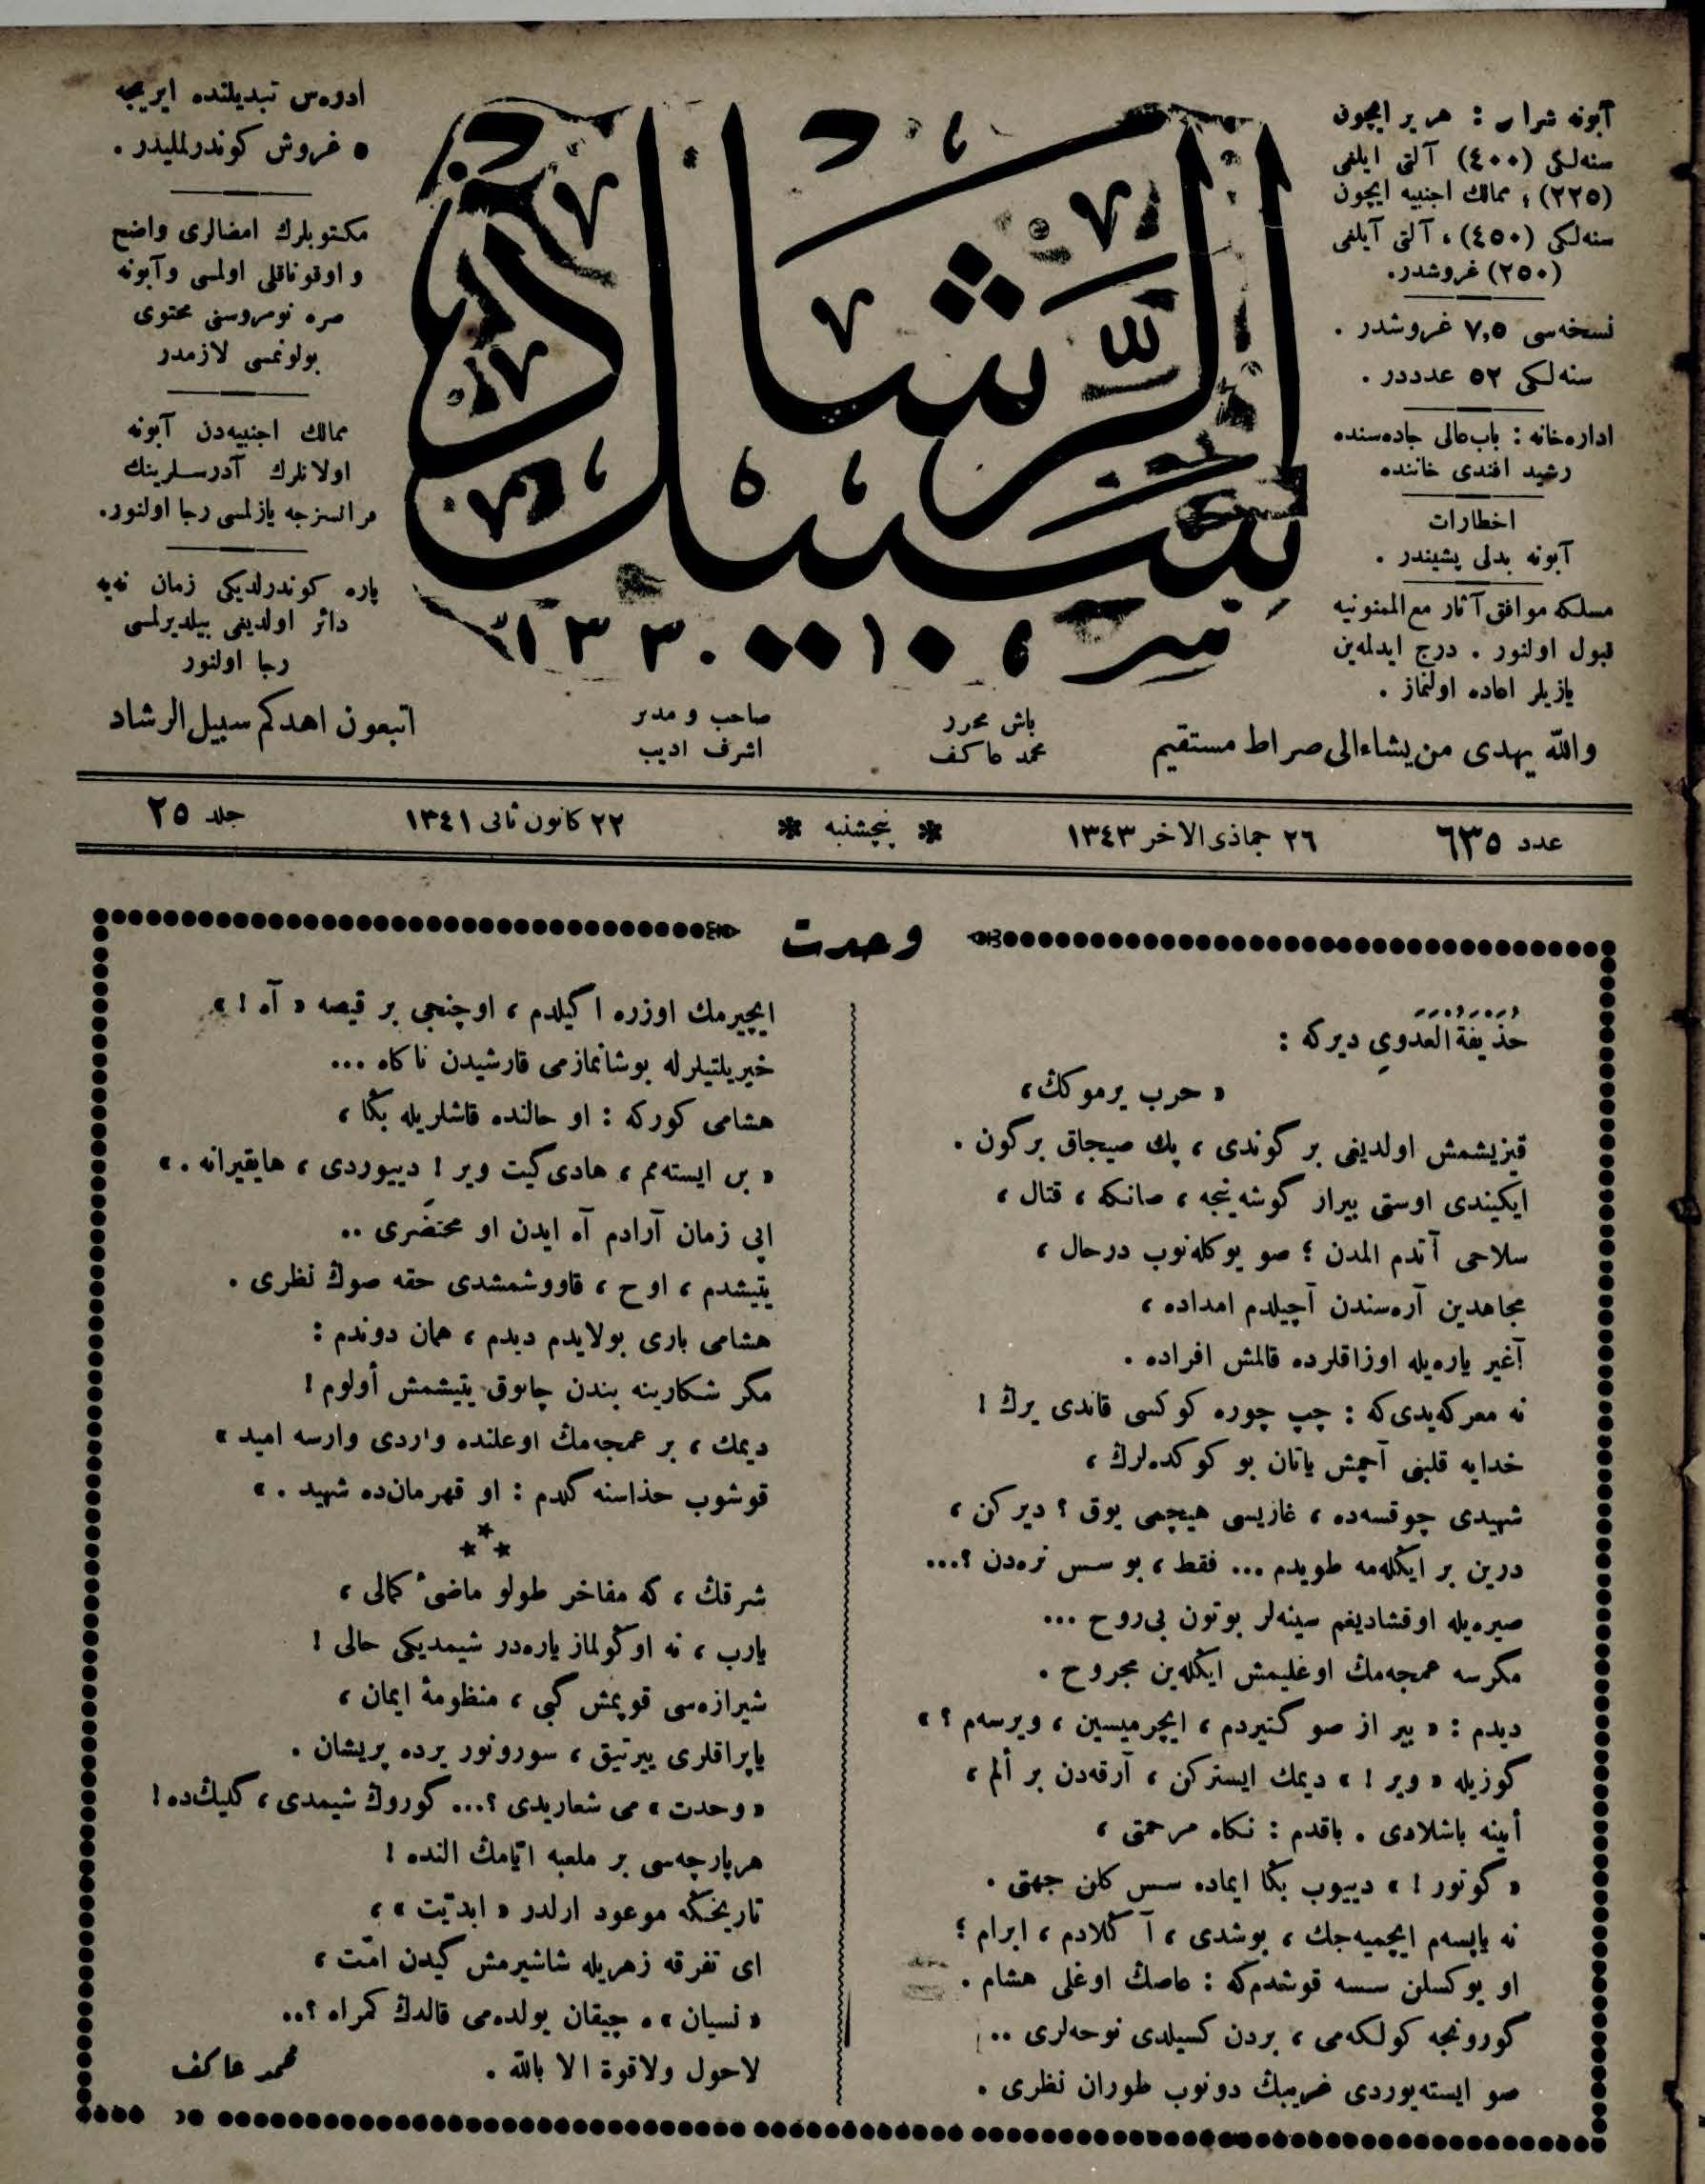 آبونه شرائطی : هر یر ایچون
سنه‌لكی (٤٠٠) آلتی ایلغی
(٢٢٥) ، ممالك اجنبیه ایچون
سنه‌لكی (٤٥٠) ، آلتی آیلغی
(٢٥٠) غروشدر.
نسخه‌سی ٧,٥ غروشدر .
سنه‌لكی ٥٢ عدددر .
اداره‌خانه : باب‌عالی جاده‌سنده
رشید افندی خاننده
اخطارات
آبونه بدلی پشیندر .
مسلكه موافق آثار مع‌الممنونیه
قبول اولنور . درج ایدلمه‌ین
یازیلر اعاده اولنماز .
سبیل الرشاد
١٣٣٠
ادره‌س تبدیلنده ایریجه
٥ غروش كوندرلملیدر .
مكتوبلرك امضالری واضح
و اوقوناقلی اولمسی وآبونه
صره نومروسنی محتوی
بولونمسی لازمدر
ممالك اجنبیه‌دن آبونه
اولانلرك آدرسلرینك
فرانسزجه یازلمسی رجا اولنور.
پاره كوندرلدیكی زمان نه‌یه
دائر اولدیغی بیلدیرلمسی
رجا اولنور
والله یهدی من یشاء الی صراط مستقیم
باش محرر
محمد عاكف
صاحب و مدیر
اشرف ادیب
اتبعون اهدكم سبیل الرشاد
عدد ٦٣٥
٢٦ جماذی الاخر ١٣٤٣
* پنچشنبه *
٢٢ كانون ثانی ١٣٤١
جلد ٢٥
وحدت
حُذَیفَةُ العَدَوِی دیركه :
« حرب یرموكڭ،
قیزیشمش اولدیغی بر كوندی ، پك صیجاق بر كون .
ایكیندی اوستی بیراز كوشه‌ینجه ، صانكه ، قتال ،
سلاحی آتدم المدن ؛ صو یوكله‌نوب درحال ،
مجاهدین آره‌سندن آچیلدم امداده ،
آغیر یاره‌یله اوزاقلرده قالمش افراده .
نه معركه‌یدی‌كه : چپ چوره كوكسی قاندی یرڭ !
خدایه قلبنی آچمش یاتان بو كوكده‌لرڭ ،
شهیدی چوقسه‌ده ، غازیسی هیچمی یوق ؟ دیركن ،
درین بر ایڭله‌مه طویدم ... فقط ، بو سس نره‌دن ؟...
صیره‌یله اوقشادیغم سینه‌لر بوتون بی‌روح ...
مكرسه عمجه‌مڭ اوغلیمش ایڭله‌ین مجروح .
دیدم : « بیر از صو كتیردم ، ایچرمیسین ، ویرسه‌م ؟ »
كوزیله « ویر ! » دیمك ایستركن ، آرقه‌دن بر ألم ،
أینه باشلادی . باقدم : نكاه مرحمتی ،
« كوتور ! » دییوب بڭا ایماده سس كلن جهتی .
نه یاپسه‌م ایچمیه‌جك ، بوشدی ، آڭلادم ، ابرام ؛
او یوكسلن سسه قوشدم‌كه : عاصڭ اوغلی هشام .
كورونجه كولكه‌می ، بردن كسیلدی نوحه‌لری ..
صو ایسته‌یوردی غریبڭ دونوب طوران نظری .
ایچیرمك اوزره اكیلدم ، اوچنجی بر قیصه « آه ! »
خیریلتیلرله بوشانمازمی قارشیدن ناكاه ...
هشامی كوركه : او حالنده قاشلریله بڭا ،
« بن ایسته‌مم ، هادی كیت ویر ! دییوردی ، هایقیرانه . »
ایی زمان آرادم آه ایدن او محتضَری ..
یتیشدم ، اوح ، قاووشمشدی حقه صوڭ نظری .
هشامی باری بولایدم دیدم ، همان دوندم :
مكر شكارینه بندن چابوق یتیشمش أولوم !
دیمك ، بر عمجه‌مڭ اوغلنده واردی وارسه امید »
قوشوب حذاسنه كلدم : او قهرمان‌ده شهید . »
***
شرقڭ ، كه مفاخر طولو ماضیٔ كمالی ،
یارب ، نه اوڭولماز یاره‌در شیمدیكی حالی !
شیرازه‌سی قوپمش كبی ، منظومهٔ ایمان ،
یاپراقلری ییرتیق ، سورونور یرده پریشان .
« وحدت » می شعاریدی ؟... كوروڭ شیمدی ، كلیڭ‌ده !
هرپارچه‌سی بر ملعبه ایامڭ النده !
تاریخڭكه موعود ازلدر « ابدیّت » ،
ای تفرقه زهریله شاشیرمش كیدن امّت ،
« نسیان » ه چیقان یولده‌می قالدڭ كمراه ؟..
لاحول ولاقوة الا بالله .
محمد عاكف